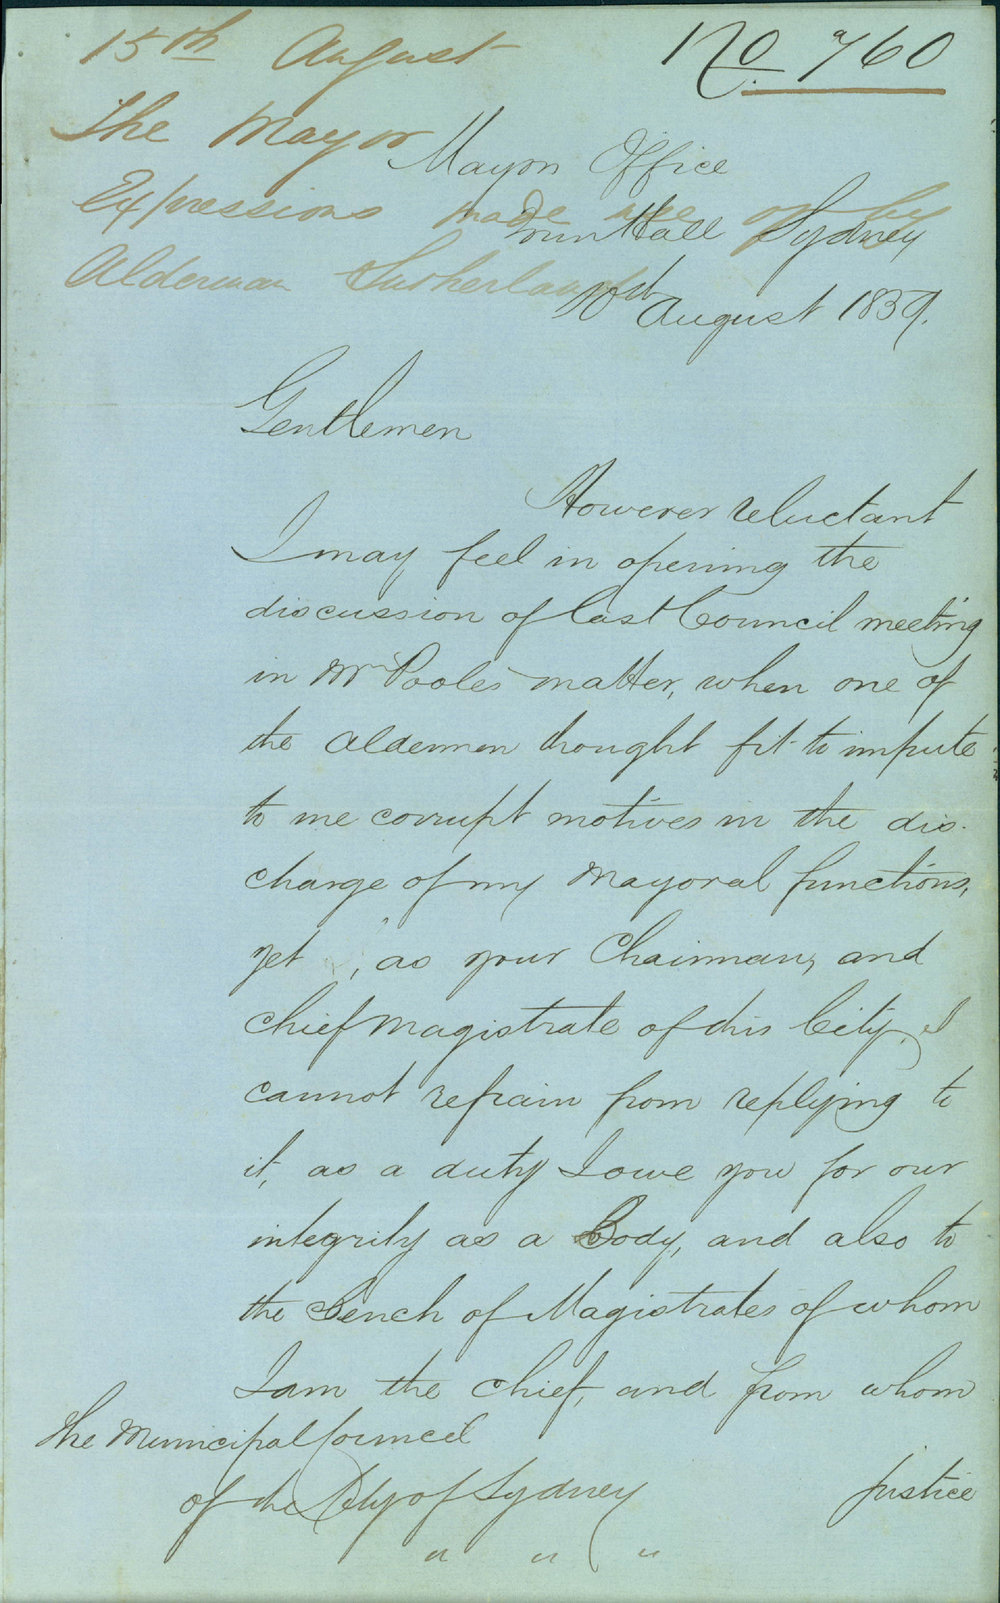 15th August
No 760
The Mayor
Expressions made use of by
Alderman Sutherland
Mayors Office
Town Hall Sydney
10th August 1859.
Gentlemen
However reluctant
I may feel in opening the
discussion of last Council meeting
in Mr Pooles matter, when one of
the Aldermen thought fit to impute
to me corrupt motives in the dis-
charge of my Mayoral functions,
yet, as your Chairman, and
Chief Magistrate of this City, I
cannot refrain from replying to
it, as a duty I owe you for our
integrity as a Body, and also to
the Bench of Magistrates of whom
I am the chief, and from whom
The Municipal Council
of the City of Sydney
justice
" " "